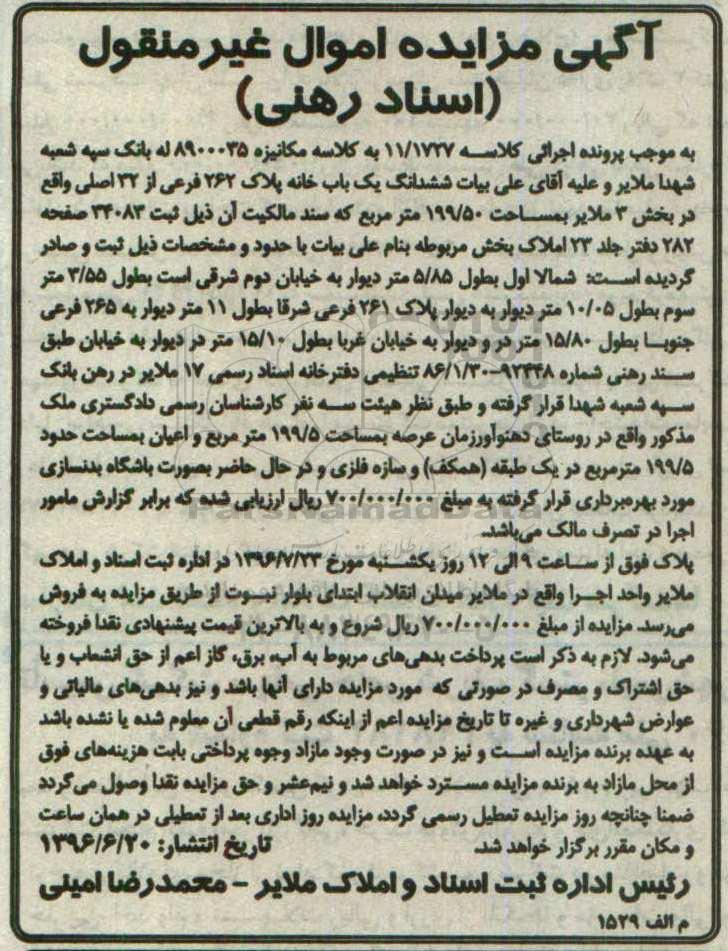 آگهی مزایده اموال غیرمنقول
(اسناد رهنی)
به موجب پرونده اجرائی کلاسه ۱۱/۱۷۲۷ به کلاسه مکانیزه ۸۹۰۰۰۳۵ له بانک سپه شعبه
شهدا ملایر و علیه آقای علی بیات ششدانگ یک باب خانه پلاک ۲۶۲ فرعی از ۳۲ اصلی واقع
در بخش ۳ ملایر بمساحت ۱۹۹/۵۰ متر مربع که سند مالکیت آن ذیل ثبت ۳۴۰۸۳ صفحه
۲۸۲ دفتر جلد ۲۳ املاک بخش مربوطه بنام علی بیات با حدود و مشخصات ذیل ثبت و صادر
گردیده است: شمالا اول بطول ۵/۸۵ متر دیوار به خیابان دوم شرقی است بطول ۳/۵۵ متر
سوم بطول ۱۰/۰۵ متر دیوار به دیوار پلاک ۲۶۱ فرعی شرقا بطول ۱۱ متر دیوار به ۲۶۵ فرعی
جنوبا بطول ۱۵/۸۰ متر در و دیوار به خیابان غربا بطول ۱۵/۱۰ متر در دیوار به خیابان طبق
سند رهنی شماره ۹۲۴۴۸-۸۶/۱/۳۰ تنظیمی دفترخانه اسناد رسمی ۱۷ ملایر در رهن بانک
سپه شعبه شهدا قرار گرفته و طبق نظر هیئت سه نفر کارشناسان رسمی دادگستری ملک
مذکور واقع در روستای دهنوآورزمان عرصه بمساحت ۱۹۹/۵ متر مربع و اعیان بمساحت حدود
۱۹۹/۵ مترمربع در یک طبقه (همکف) و سازه فلزی و در حال حاضر بصورت باشگاه بدنسازی
مورد بهره‌برداری قرار گرفته به مبلغ ۷۰۰/۰۰۰/۰۰۰ ریال ارزیابی شده که برابر گزارش مامور
اجرا در تصرف مالک می‌باشد.
پلاک فوق از ساعت ۹ الی ۱۲ روز یکشنبه مورخ ۱۳۹۶/۷/۲۳ در اداره ثبت اسناد و املاک
ملایر واحد اجرا واقع در ملایر میدان انقلاب ابتدای بلوار نبوت از طریق مزایده به فروش
می‌رسد. مزایده از مبلغ ۷۰۰/۰۰۰/۰۰۰ ریال شروع و به بالاترین قیمت پیشنهادی نقدا فروخته
می‌شود. لازم به ذکر است پرداخت بدهی‌های مربوط به آب، برق، گاز اعم از حق انشعاب و یا
حق اشتراک و مصرف در صورتی که مورد مزایده دارای آنها باشد و نیز بدهی‌های مالیاتی و
عوارض شهرداری و غیره تا تاریخ مزایده اعم از اینکه رقم قطعی آن معلوم شده یا نشده باشد
به عهده برنده مزایده است و نیز در صورت وجود مازاد وجوه پرداختی بابت هزینه‌های فوق
از محل مازاد به برنده مزایده مسترد خواهد شد و نیم‌عشر و حق مزایده نقدا وصول می‌گردد
ضمنا چنانچه روز مزایده تعطیل رسمی گردد، مزایده روز اداری بعد از تعطیلی در همان ساعت
و مکان مقرر برگزار خواهد شد. تاریخ انتشار: ۱۳۹۶/۶/۲۰
رئیس اداره ثبت اسناد و املاک ملایر - محمدرضا امینی
م الف ۱۵۲۹
ParsNamadData